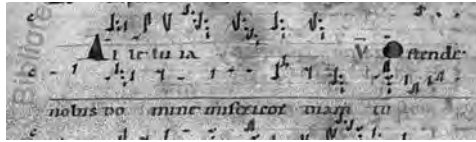 A l le lu ia V Ostende
nobis do mine misericor diam tu